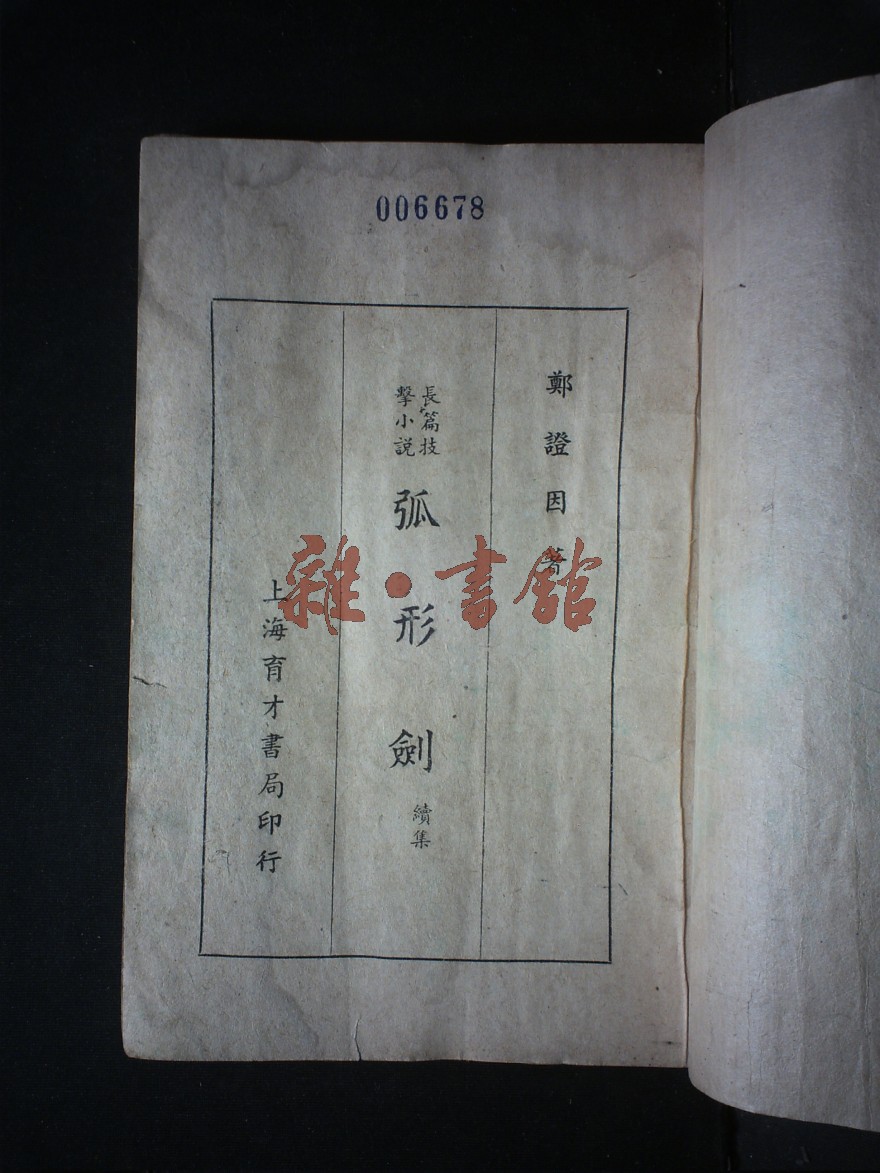 006678
鄭證因著
長篇技
擊小説
弧形劍
續集
上海育才書局印行
雜·書館